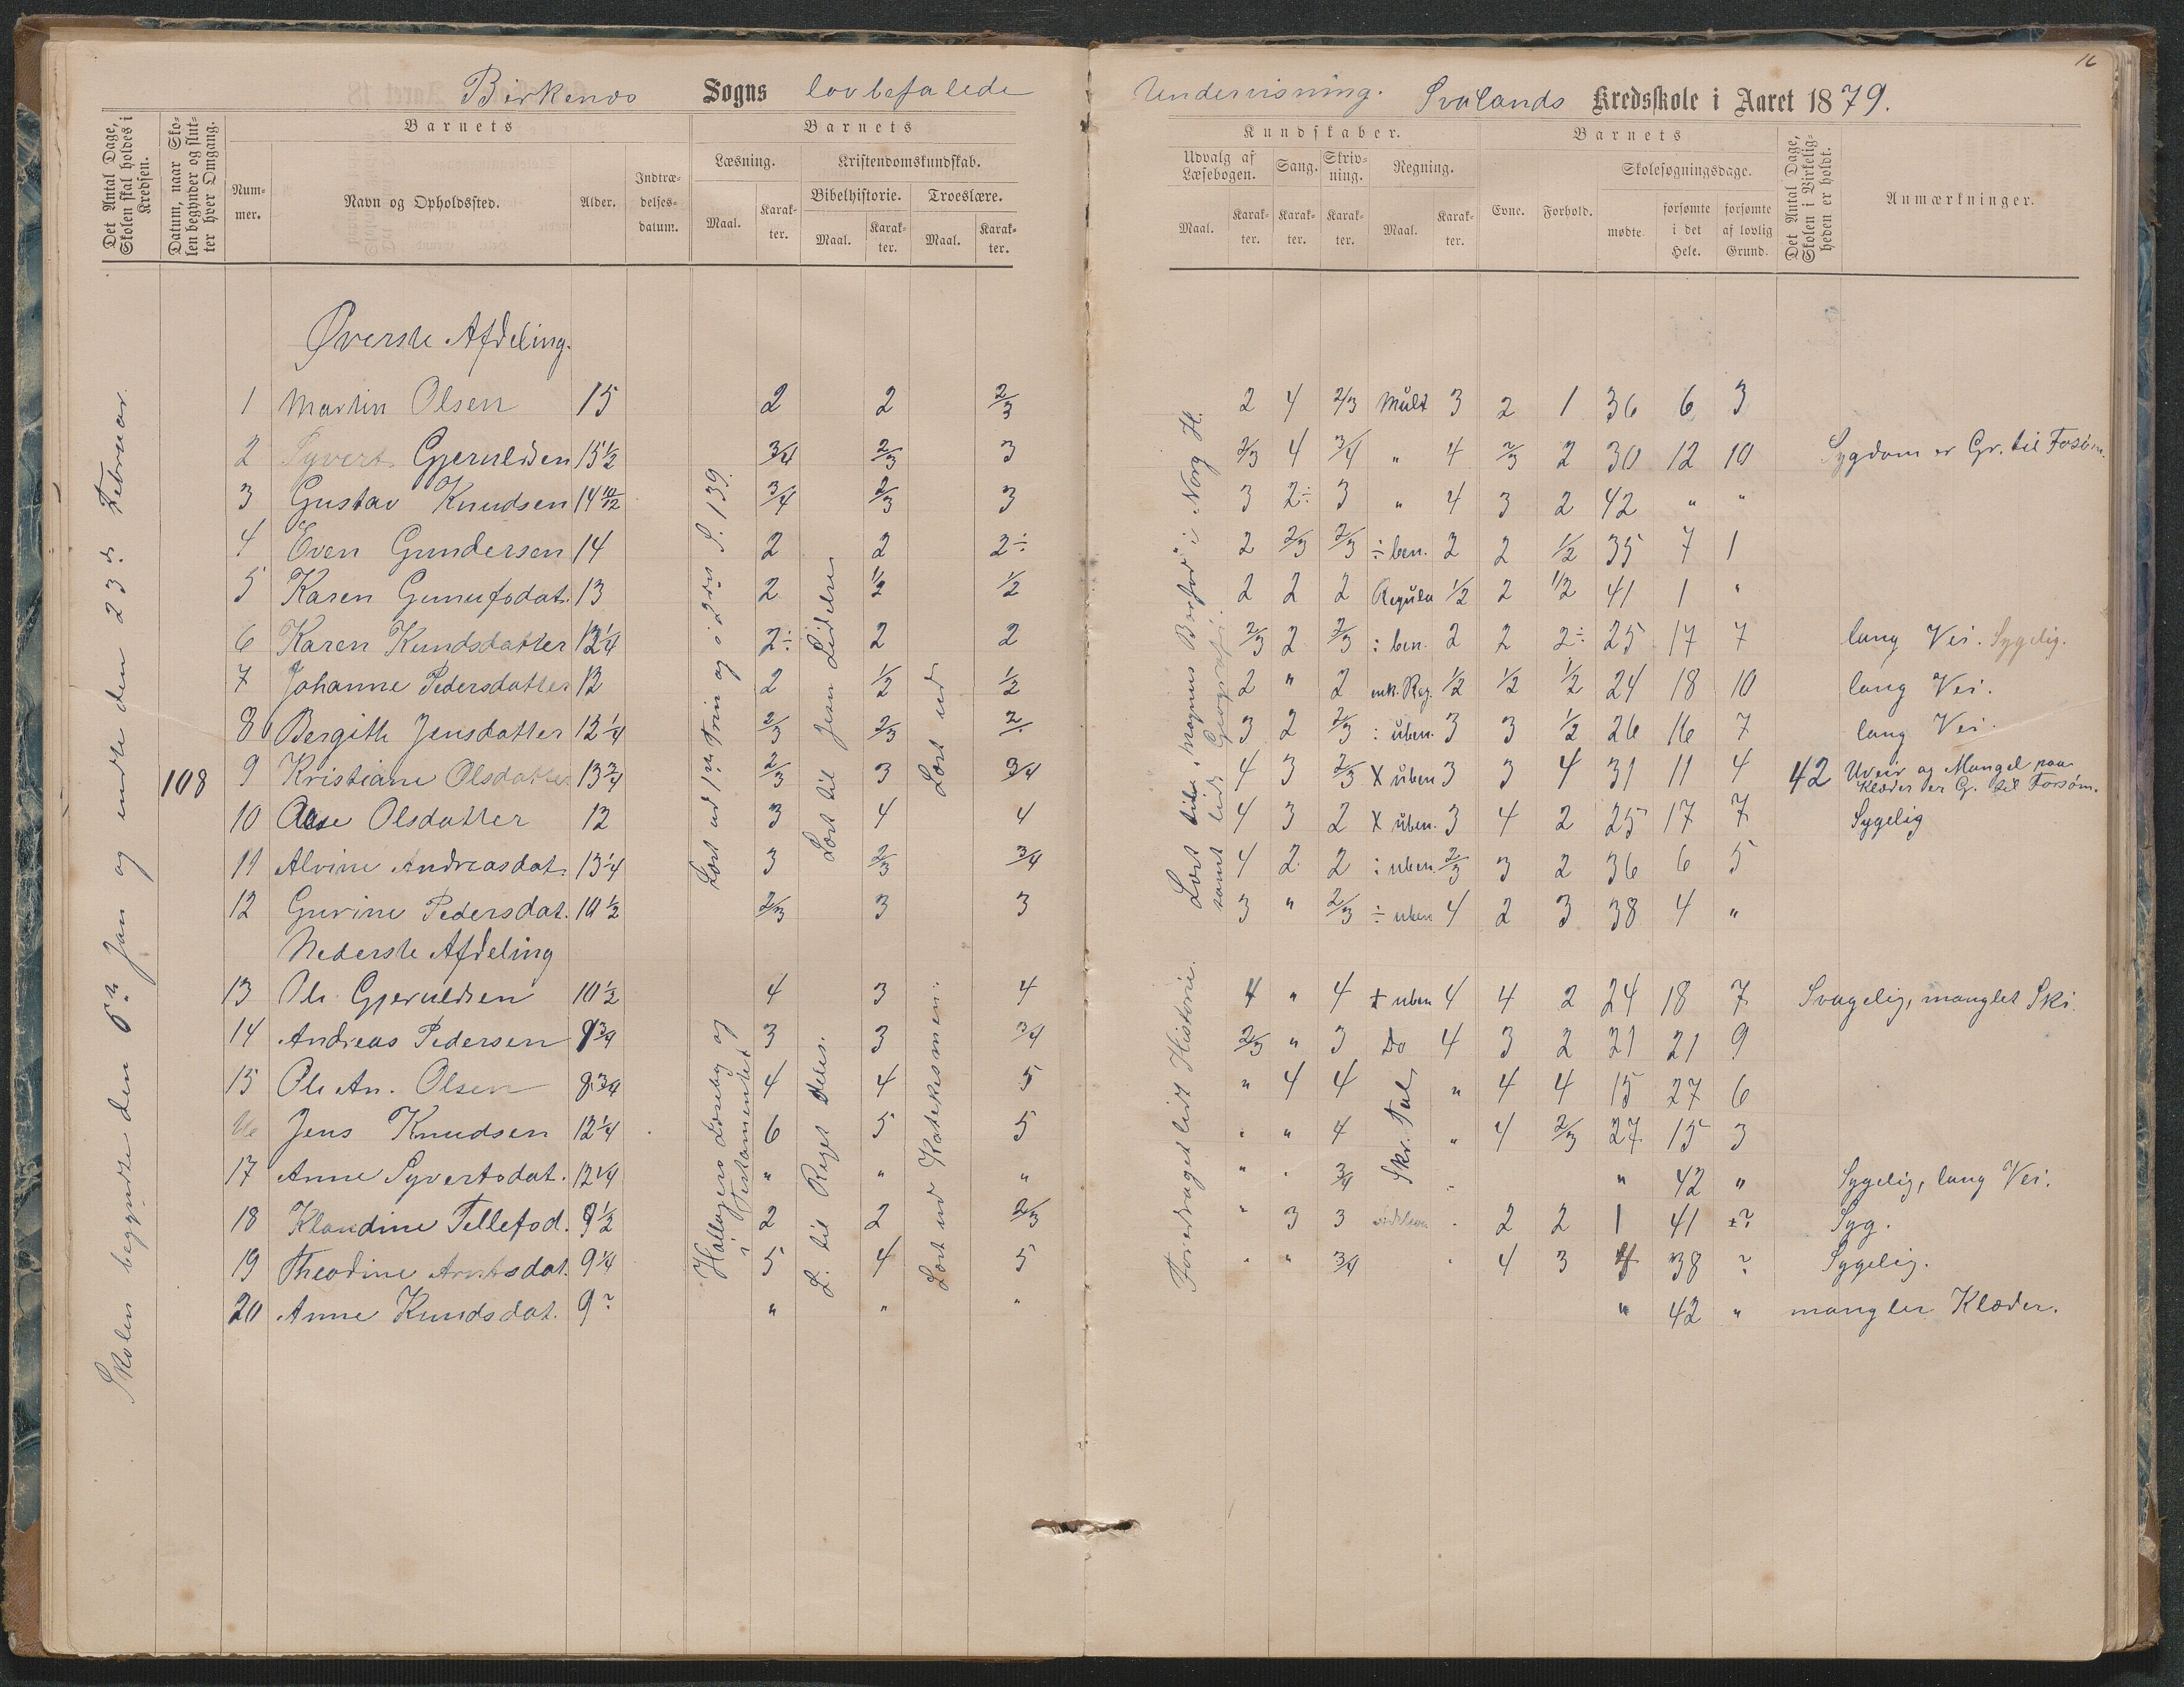 16
Birkenæs Sogns lovbefalede Undervisning. Svalands Kredsskole i Aaret 1879.
Det Antal Dage, Skolen skal holdes i Kredsen.
Datum, naar Skolen begynder og slutter hver Omgang.
Barnets
Nummer.
Navn og Opholdssted.
Alder.
Indtrædelsesdatum.
Barnets
Læsning.
Maal.
Karakter.
Kristendomskundskab.
Bibelhistorie.
Maal.
Karakter.
Troeslære.
Maal.
Karakter.
Kundskaber.
Udvalg af Læsebogen.
Maal.
Karakter.
Sang.
Karakter.
Skrivning.
Karakter.
Regning.
Maal.
Karakter.
Barnets
Evne.
Forhold.
Skolesøgningsdage.
mødte.
forsømte i det Hele.
forsømte af lovlig Grund.
Det Antal Dage, Skolen i Virkeligheden er holdt.
Anmærkninger.
Skolen begyndte den 6te Jan og endte den 23de Februar.
108
Læst ud 1ste Trin og i 2det S. 139.
Læst til Jesu Lidelse
Læst ud
Læst til "Magnus Barfod" i Norg H.
samt lidt Geografi.
42
Øverste Afdeling.
1 Martin Olsen 15 2 2 2/3 2 4 2/3 Mult 3 2 1 36 6 3
2 Syvert Gjeruldsen 15 1/2 3/4 2/3 3 2/3 4 3/4 " 4 2/3 2 30 12 10 Sygdom er Gr. til Forsøm.
3 Gustav Knudsen 14 10/12 3/4 2/3 3 3 2÷ 3 " 4 3 2 42 " "
4 Even Gundersen 14 2 2 2÷ 2 2/3 2/3 ÷ ben. 2 2 1/2 35 7 1
5 Karen Gunufsdat. 13 2 1/2 1/2 2 2 2 Regula 1/2 2 1/2 41 1 "
6 Karen Kundsdatter 12 1/4 2÷ 2 2 2/3 2 2/3 : ben. 2 2 2÷ 25 17 7 lang Vei. Sygelig.
7 Johanne Pedersdatter 12 2 1/2 1/2 2 " 2 enk. Reg. 1/2 1/2 1/2 24 18 10 lang Vei.
8 Bergith Jensdatter 12 1/4 2/3 2/3 2/. 3 2 2/3 : uben. 3 3 1/2 26 16 7 lang Vei.
9 Kristiane Olsdatter 13 3/4 2/3 3 3/4 4 3 2/3 X uben 3 3 4 31 11 4 Uveir og Mangel paa Klæder er G. til Forsøm.
10 Aase Olsdatter 12 3 4 4 4 3 2 X uben. 3 4 2 25 17 7 Sygelig
11 Alvine Andreasdat. 13 1/4 3 2/3 3/4 4 2 2 : uben. 2/3 3 2 36 6 5
12 Gurine Pedersdat. 10 1/2 2/3 3 3 3 " 2/3 ÷ uben 4 2 3 38 4 "
Nederste Afdeling
Hallagers Læsebog og i Testamentet
L. til Riget deles.
Læst ud Katekismen.
Foredraget lidt Historie.
13 Ole Gjeruldsen 10 1/2 4 3 4 4 " 4 + uben 4 4 2 24 18 7 Svagelig, manglet Ski.
14 Andreas Pedersen 9 3/4 3 3 3/4 2/3 " 3 Do 4 3 2 21 21 9
15 Ole An. Olsen 8 3/4 4 4 5 " 4 4 Skr. Tal " 4 4 15 27 6
16 Jens Knudsen 12 1/4 6 5 5 " " 4 " 4 2/3 27 15 3
17 Anne Syvertsdat. 12 1/4 " " " " " 3/4 " " 42 " Sygelig, lang Vei.
18 Klaudine Tellefsd. 9 1/2 2 2 2/3 " 3 3 " 2 2 1 41 ? Syg.
19 Theodine dat. 9 1/4 5 4 5 " " 3/4 " 4 3 4 38 ? Sygelig.
20 Anne Kundsdat. 9 ? " " " " 42 " mangler Klæder.